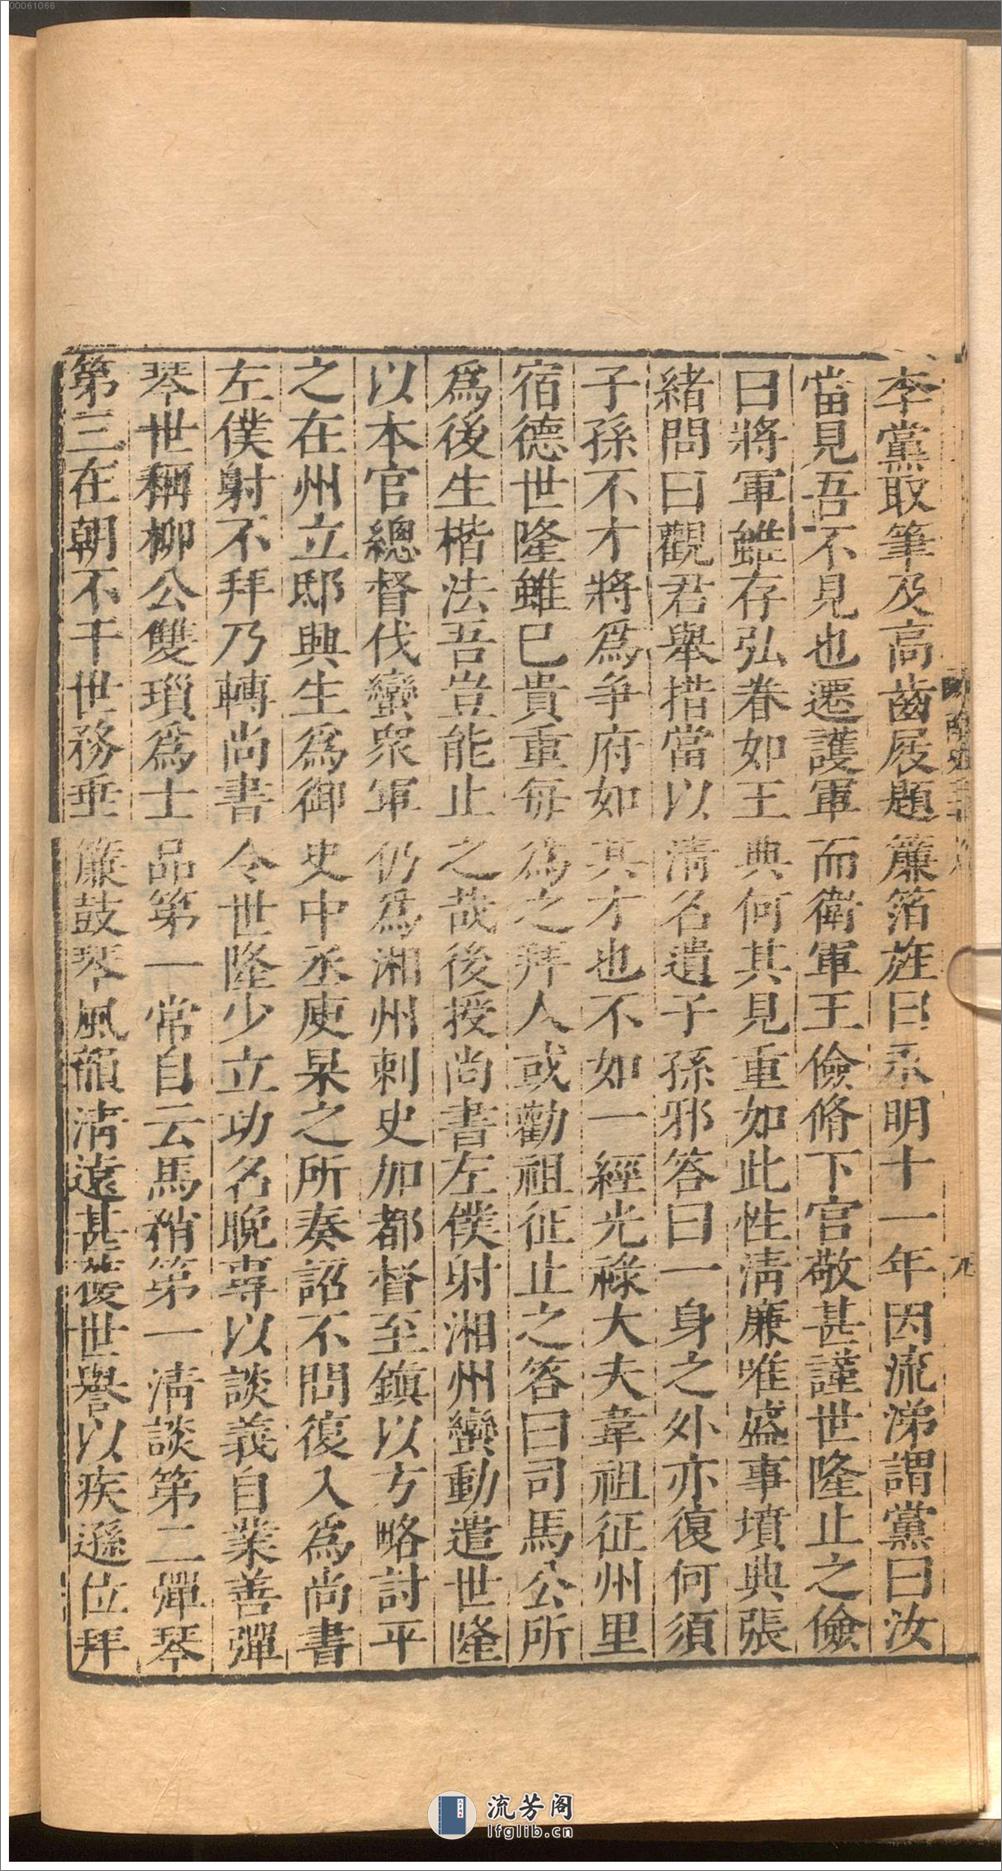 李黨取筆及高齒屐題簾箔旌曰永明十一年因流涕謂黨曰汝
當見吾不見也遷護軍而衛軍王儉脩下官敬甚謹世隆止之儉
曰將軍雖存弘眷如王典何其見重如此性清廉唯盛事墳典張
緒問曰觀君舉措當以清名遺子孫邪答曰一身之外亦復何須
子孫不才將爲争府如其才也不如一經光祿大夫韋祖征州里
宿德世隆雖巳貴重每爲之拜人或勸祖征止之答曰司馬公所
爲後生楷法吾豈能止之哉後授尚書左僕射湘州蠻動遣世隆
以本官總督伐蠻衆軍仍爲湘州刺史加都督至鎮以方略討平
之在州立邸興生爲御史中丞庾杲之所奏詔不問復入爲尚書
左僕射不拜乃轉尚書令世隆少立功名晚專以談義自業善彈
琴世稱柳公雙瑣爲士品第一常自云馬矟第一清談第二彈琴
第三在朝不干世務垂簾鼓琴風韻清遠甚獲世譽以疾遜位拜
九
流芳阁
lfglib.cn
00061066